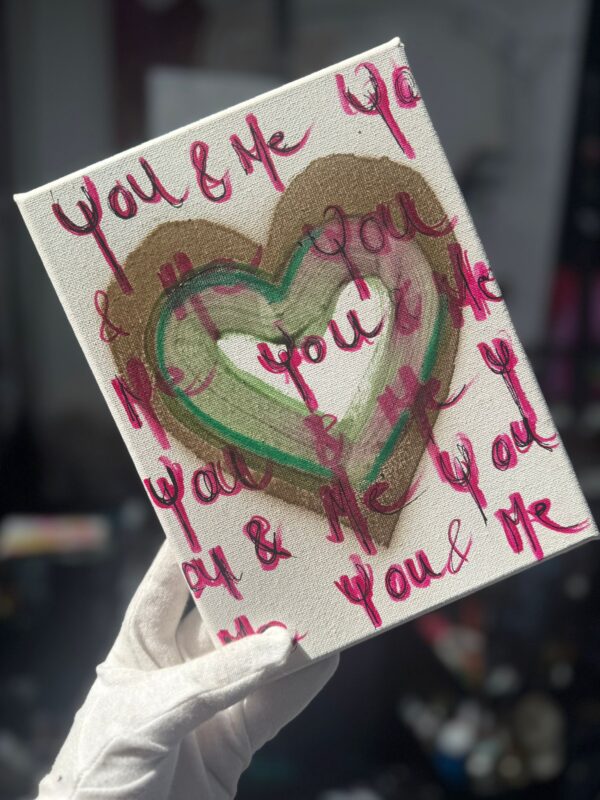 You & Me Yo
& Me You
Me You & Me
You & Me Y
ou & Me You
Me You & Me